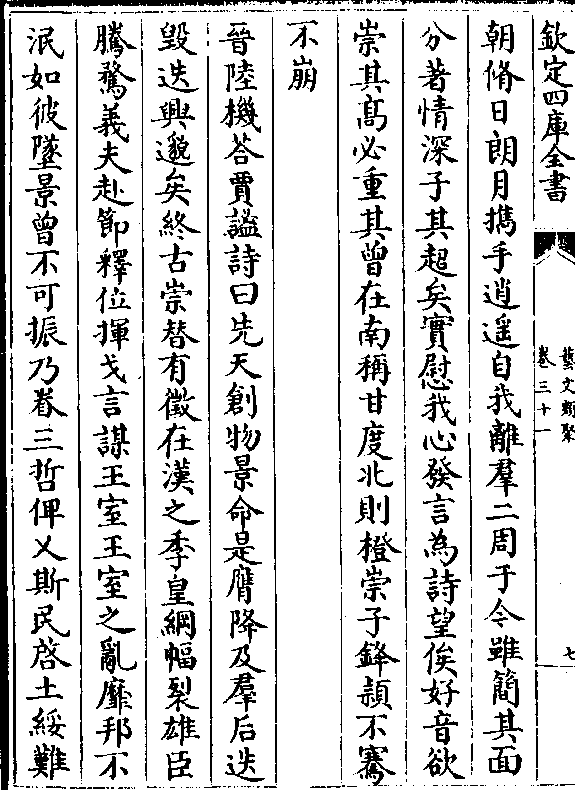 欽定四庫全書
藝文類聚
卷三十一
七
朝脩日朗月攜手逍遥自我離羣二周于今雖簡其面
分著情深子其超矣實慰我心發言為詩望俟好音欲
崇其髙必重其曾在南稱甘度北則橙崇子鋒頴不騫
不崩
晉陸機荅賈謐詩曰先天創物景命是膺降及羣后迭
毀迭興邈矣終古崇替有徵在漢之季皇綱幅裂雄臣
騰騖義夫赴節釋位揮戈言謀王室王室之亂靡邦不
泯如彼墜景曾不可振乃眷三哲俾乂斯民啓土綏難